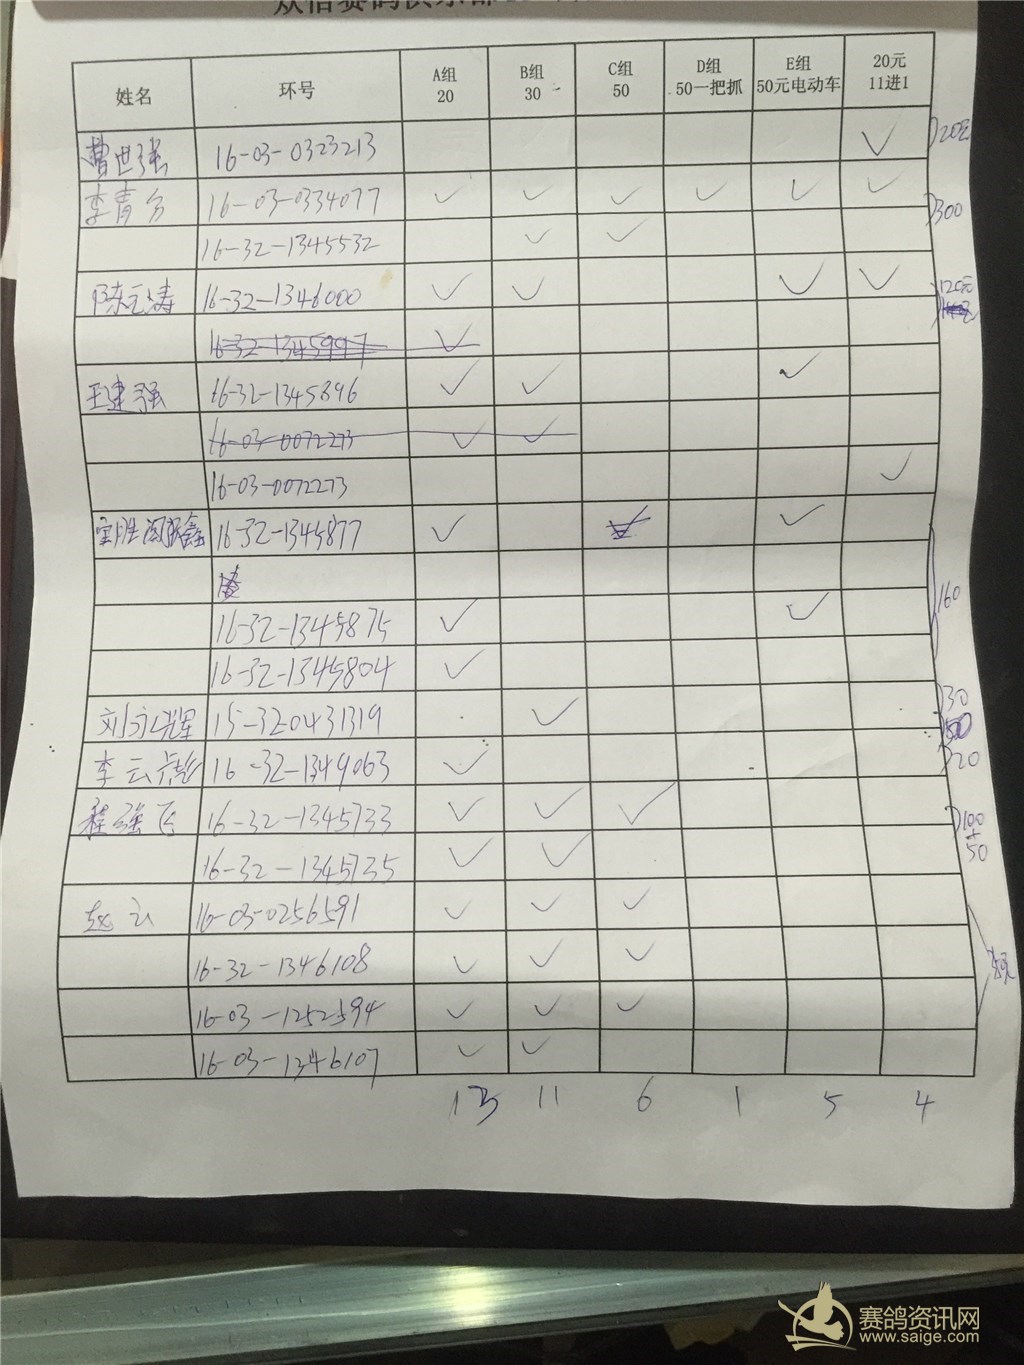 姓名 环号 A组 20 B组 30 C组 50 D组 50一把抓 E组 50元电动车 20元 11进1
曹世强 16-03-0323213 ✓ 20元
李青分 16-03-0334077 ✓ ✓ ✓ ✓ ✓ ✓ 300
16-32-1345532 ✓ ✓
陈元涛 16-32-1346000 ✓ ✓ ✓ ✓ 120元
16-32-1345997 ✓
王建强 16-32-1345896 ✓ ✓ ✓
16-03-0072273 ✓ ✓
16-03-0072273 ✓
16-32-1345877 ✓ ✓
16-32-1345875 ✓ ✓ 160
16-32-1345804 ✓
刘永辉 15-320431319 ✓ 30
李云 16-32-1349063 ✓ 20
程强飞 16-32-1345733 ✓ ✓ ✓ 100
+
16-32-1345735 ✓ ✓ 50
赵云 16-03-0256591 ✓ ✓ ✓
16-32-1346108 ✓ ✓ ✓
16-03-1252594 ✓ ✓ ✓
16-03-1346107 ✓ ✓
13 11 6 1 5 4
赛鸽资讯网
www.saige.com